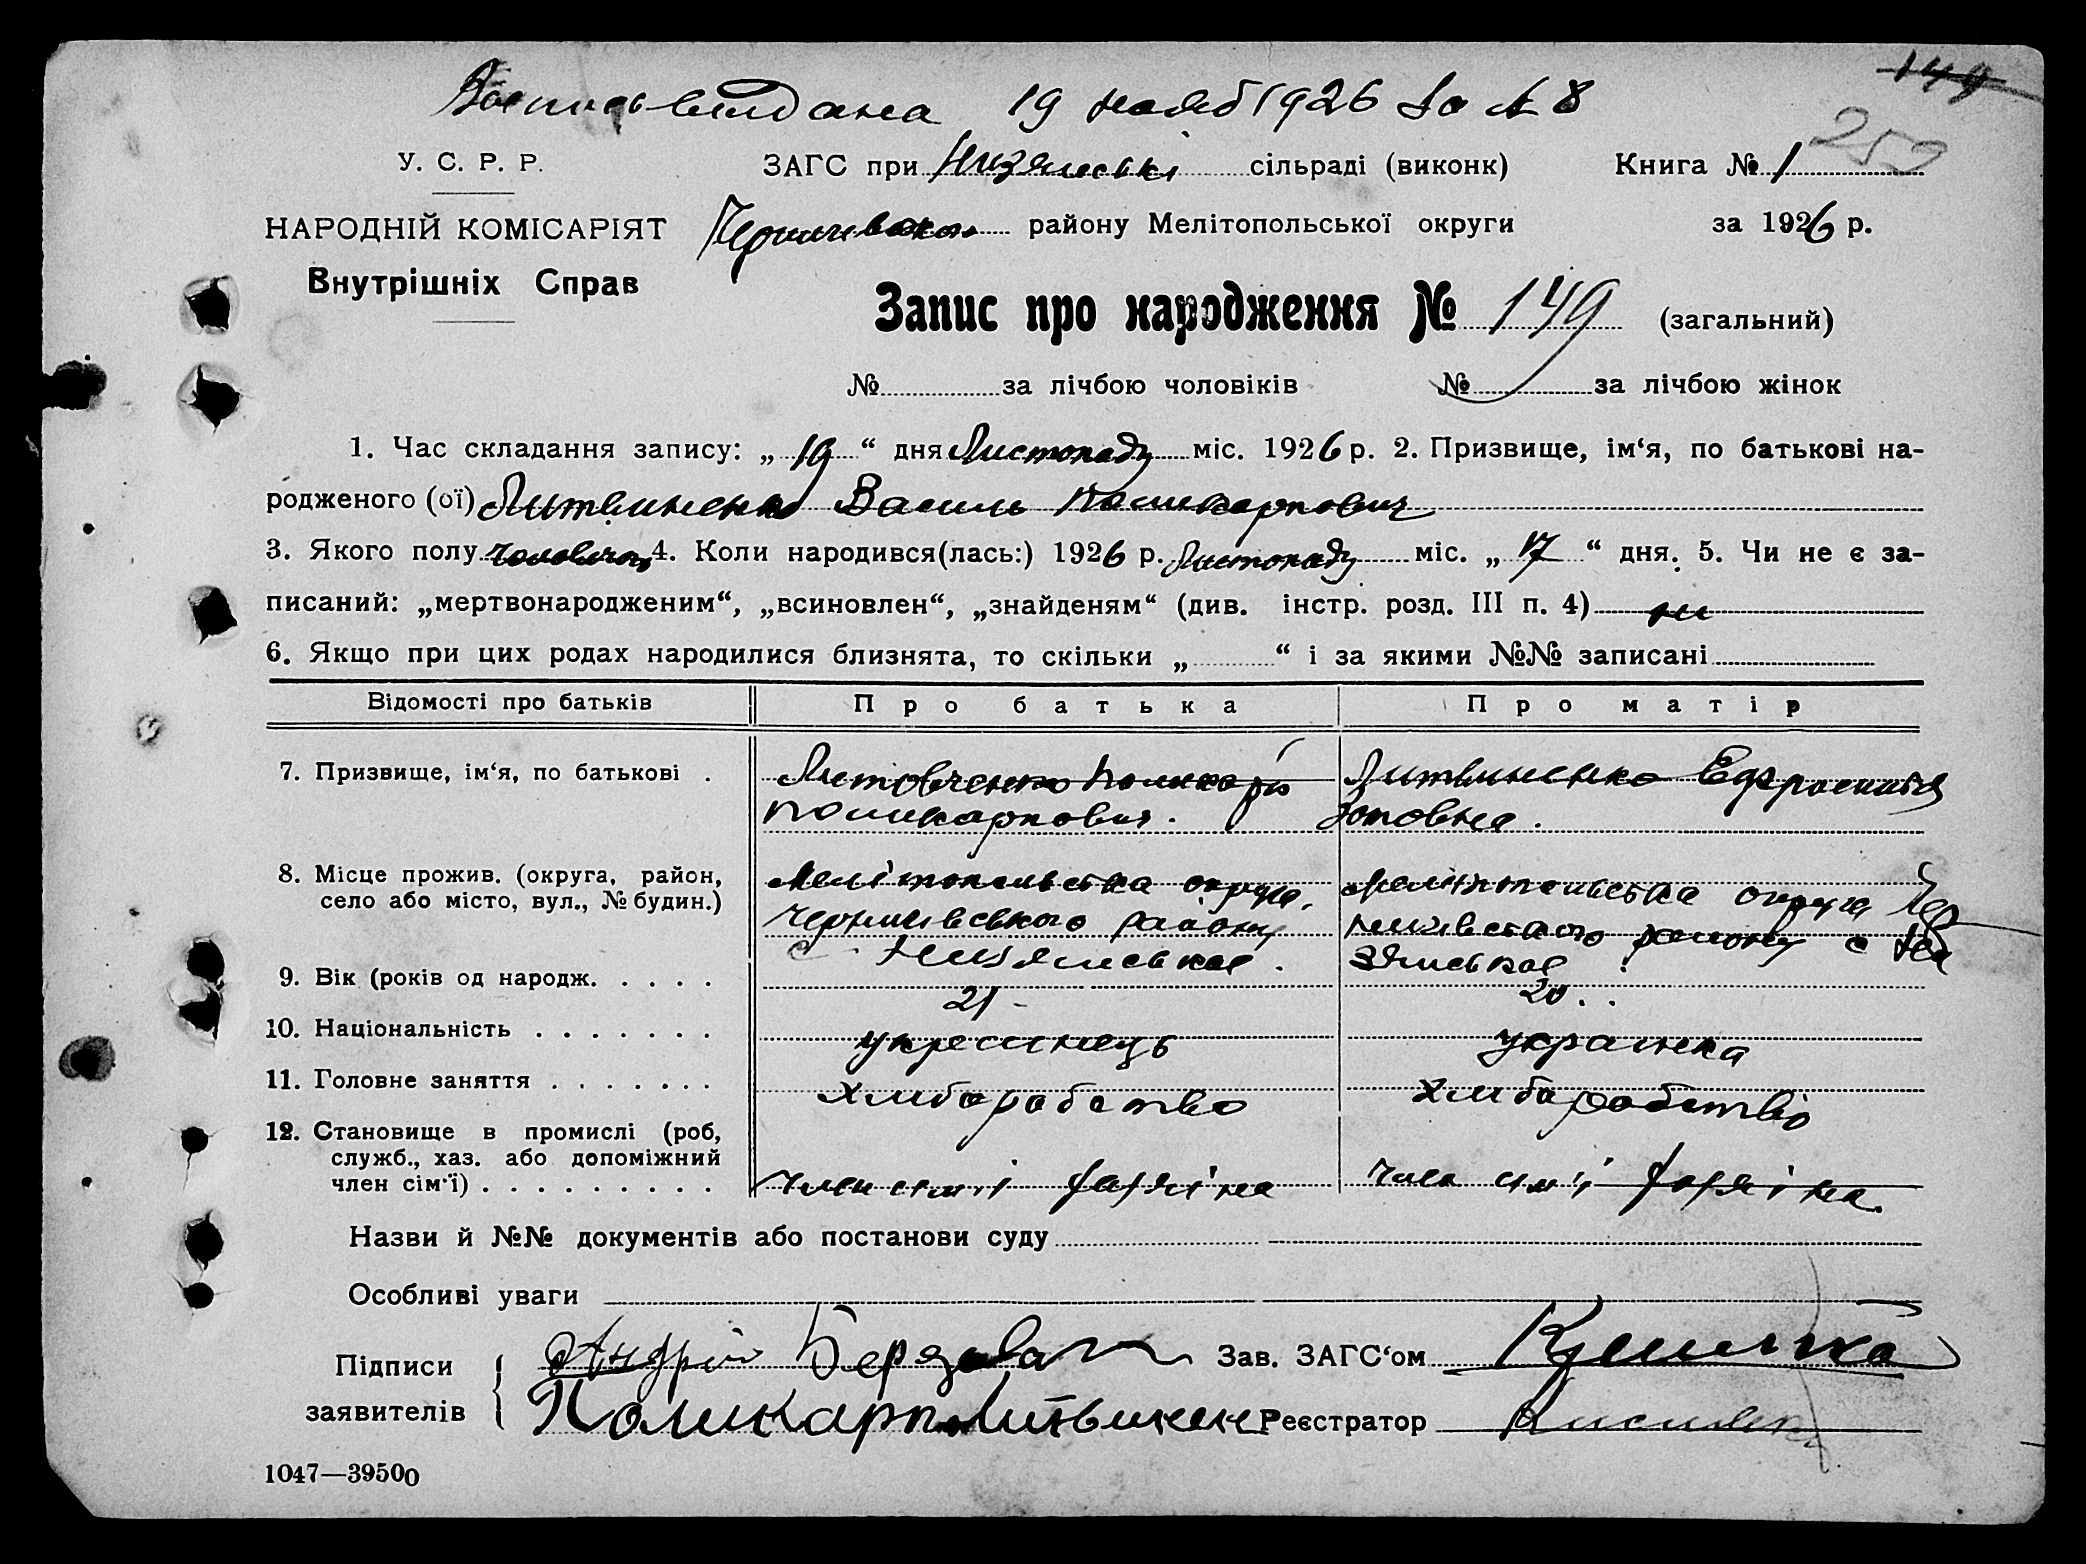 149
Виписъ видана 19 нояб 1926 За № 8
252
У. С. Р. Р. ЗАГС при Низянські сільраді (виконк) Книга № 1
НАРОДНІЙ КОМІСАРІЯТ району Мелітопольської округи за 1926 р.
Внутрішніх Справ
Запис про народження № 149 (загальний)
№ за лічбою чоловіків № за лічбою жінок
1. Час складання запису: „ 19 “ дня Листопаду міс. 1926 р. 2. Призвище, ім‘я, по батькові на-
родженого (ої) Литвиненко Василь Поликарпович
3. Якого полу чоловічого 4. Коли народився(лась:) 1926 р. Листопаду міс. „ 17 “ дня. 5. Чи не є за-
писаний: „мертвонародженим“, „всиновлен“, „знайденям“ (див. інстр. розд. III п. 4) ни
6. Якщо при цих родах народилися близнята, то скільки „ “ і за якими №№ записані
Відомості про батьків Про батька Про матір
7. Призвище, ім‘я, по батькові . Литовченко Поликарп Литвиненко Ефросинія
Поликарпович. Зотовна.
8. Місце прожив. (округа, район, Мелітопольська округа, Мелітопольська округа Чер
село або місто, вул., № будин.) Чернигівського району нигівського району с Ни
с Низянськое. зянськое.
9. Вік (років од народж. . . . . 21 - 20 . .
10. Національність . . . . . . . українець українка
11. Головне заняття . . . . . . . хлиборобство хлиборобство
12. Становище в промислі (роб,
служб., хаз. або допоміжний
член сім‘ї) . . . . . . . . . член сим'і член сим'і
Назви й №№ документів або постанови суду
Особливі уваги
Підписи Андрій Зав. ЗАГС‘ом
заявителів Поликарп Литвинен Реєстратор
1047—39500